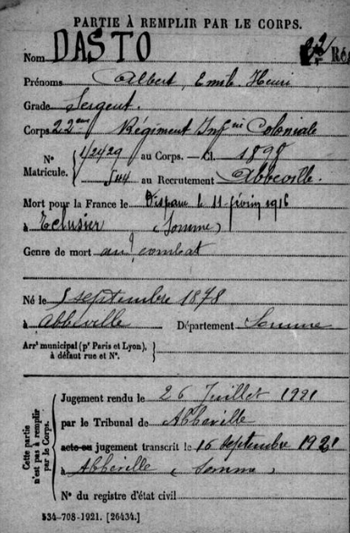 PARTIE À REMPLIR PAR LE CORPS.
Nom DASTO
Prénoms Albert, Emile Henri
Grade Sergent.
Corps 22ème Régiment Infie Coloniale
N° 12429 au Corps. — Cl. 1898
Matricule. 544 au Recrutement Abbeville.
Mort pour la France le Disparu le 11 février 1916
à Eclusier (Somme)
Genre de mort au combat
Né le 5 septembre 1878
à Abbéville Département Somme
Arrt municipal (pr Paris et Lyon),
à défaut rue et N°.
Cette partie
n'est pas à remplir
par le Corps.
Jugement rendu le 26 Juillet 1921
par le Tribunal de Abbeville
acte ou jugement transcrit le 16 septembre 1921
à Abbéville (Somme)
N° du registre d'état civil
534-708-1921. [26434.]